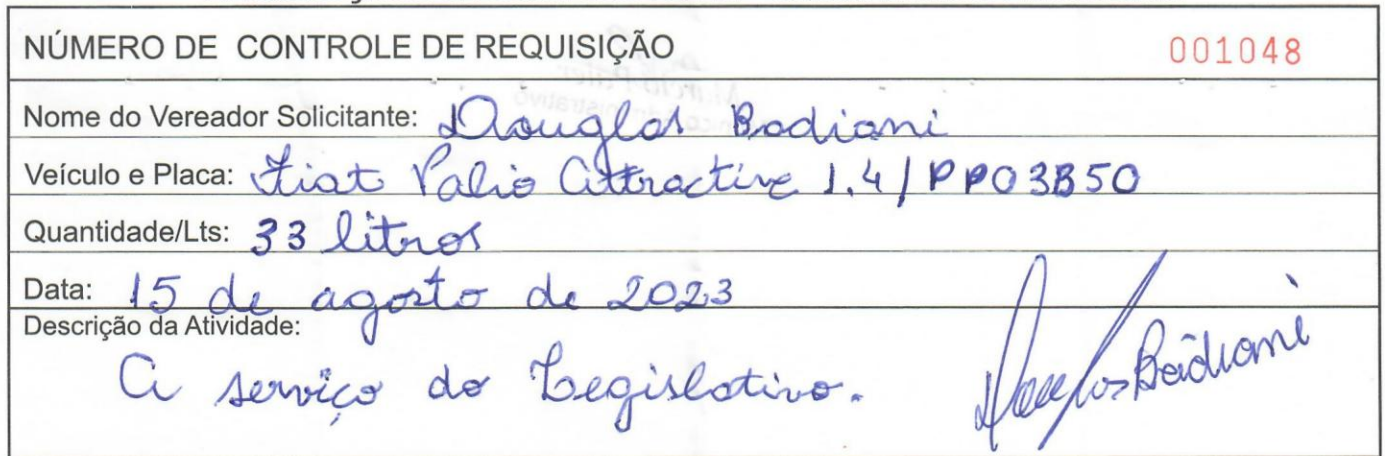 NÚMERO DE CONTROLE DE REQUISIÇÃO 001048
Nome do Vereador Solicitante: Douglas Badiani
Veículo e Placa: Fiat Palio Attractive 1.4/PPO3B50
Quantidade/Lts: 33 litros
Data: 15 de agosto de 2023
Descrição da Atividade:
A serviço do Legislativo.
Douglas Badiani